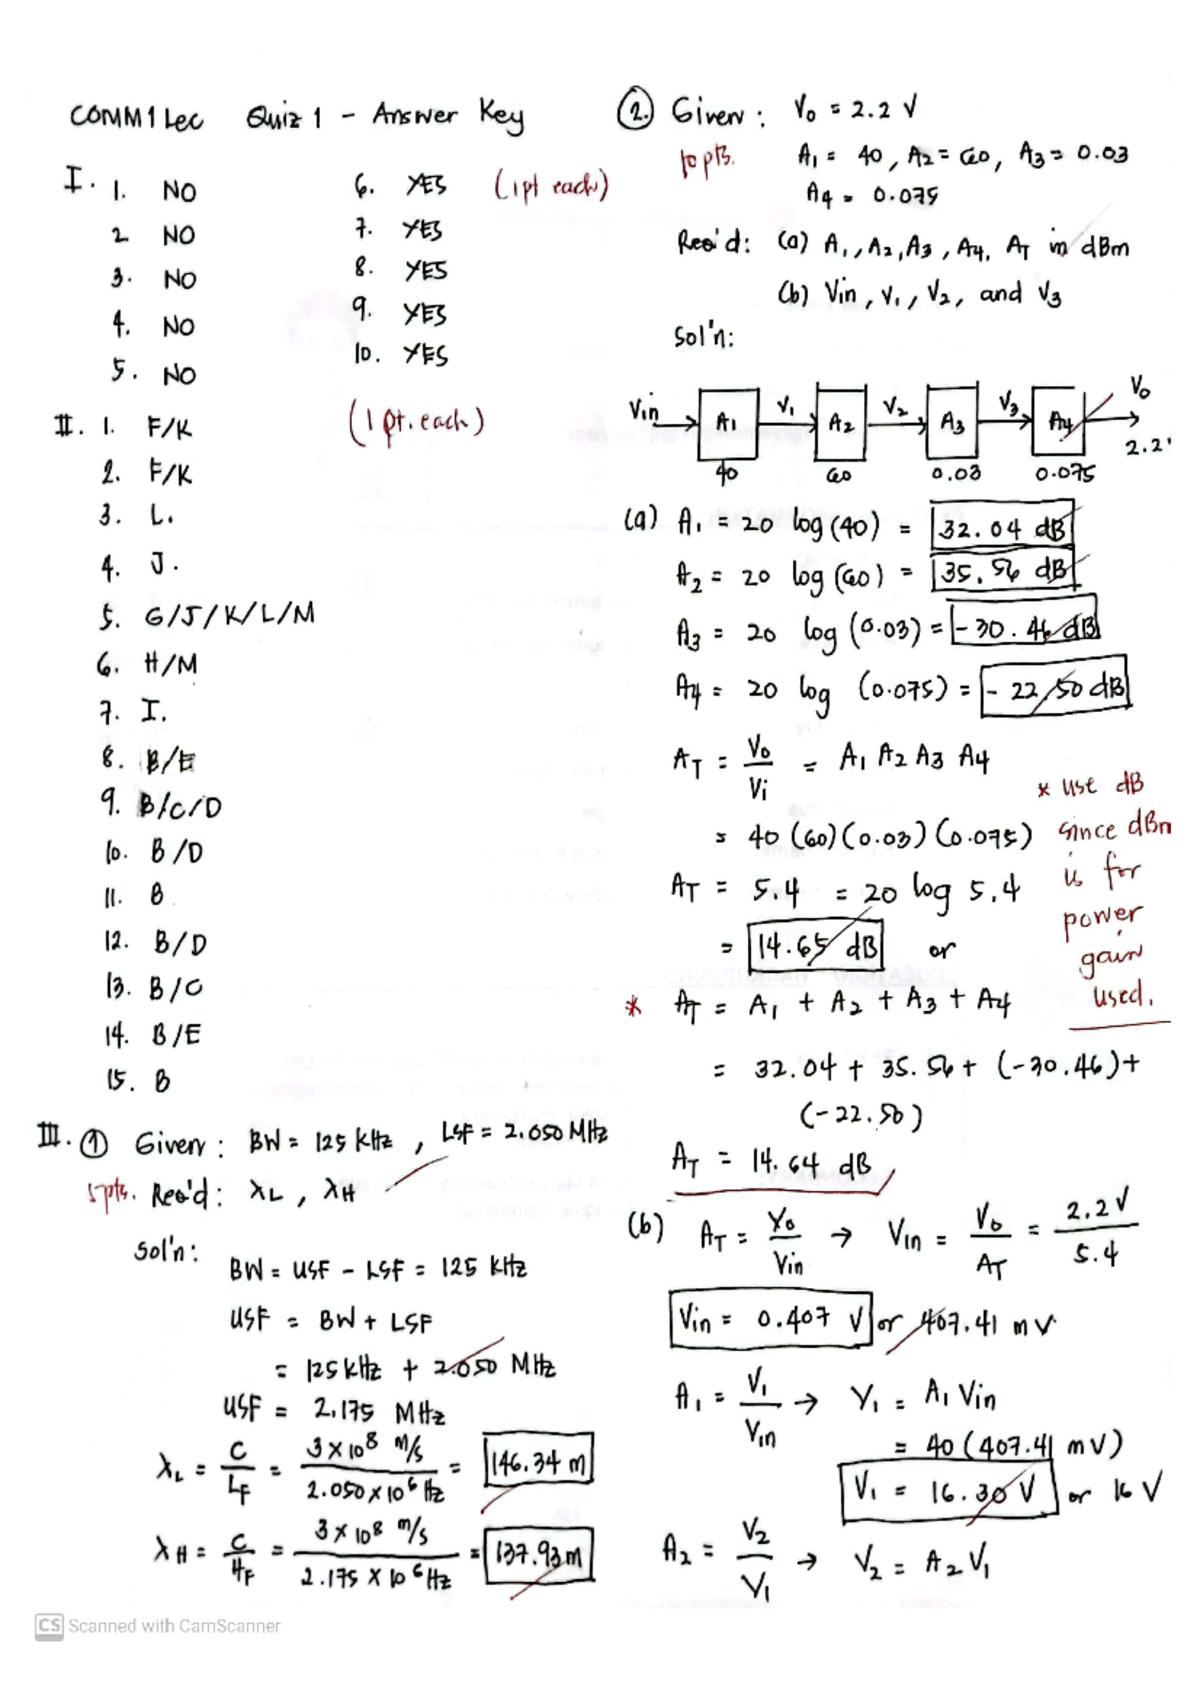 COMM1 Lec Quiz 1 - Answer Key
I. 1. NO
2 NO
3. NO
4. NO
5. NO
6. YES (1pt each)
7. YES
8. YES
9. YES
10. YES
II. 1. F/K (1 pt. each)
2. F/K
3. L.
4. J.
5. G/J/K/L/M
6. H/M
7. I.
8. B/E
9. B/C/D
10. B/D
11. B
12. B/D
13. B/C
14. B/E
15. B
III. 1 Given: BW = 125 kHz, LSF = 2.050 MHz
5pts. Req'd: λL, λH
Sol'n:
BW = USF - LSF = 125 kHz
USF = BW + LSF
= 125 kHz + 2.050 MHz
USF = 2.175 MHz
λL = C/LF = 3 x 10^8 m/s / 2.050 x 10^6 Hz = 146.34 m
λH = C/HF = 3 x 10^8 m/s / 2.175 x 10^6 Hz = 137.93 m
2. Given: Vo = 2.2 V
10 pts. A1 = 40, A2 = 60, A3 = 0.03
A4 = 0.075
Req'd: (a) A1, A2, A3, A4, AT in dBm
(b) Vin, V1, V2, and V3
Sol'n:
Vin A1 V1 A2 V2 A3 V3 A4 Vo
40 60 0.03 0.075 2.2V
(a) A1 = 20 log (40) = 32.04 dB
A2 = 20 log (60) = 35.56 dB
A3 = 20 log (0.03) = -30.46 dB
A4 = 20 log (0.075) = -22.50 dB
AT = Vo/Vi = A1 A2 A3 A4
= 40 (60)(0.03)(0.075)
AT = 5.4 = 20 log 5.4
= 14.65 dB or
* use dB
since dBm
is for
power
gain
used.
* AT = A1 + A2 + A3 + A4
= 32.04 + 35.56 + (-30.46) +
(-22.50)
AT = 14.64 dB
(b) AT = Vo/Vin → Vin = Vo/AT = 2.2 V/5.4
Vin = 0.407 V or 407.41 mV
A1 = V1/Vin → V1 = A1 Vin
= 40 (407.41 mV)
V1 = 16.30 V or 16 V
A2 = V2/V1 → V2 = A2 V1
CS Scanned with CamScanner